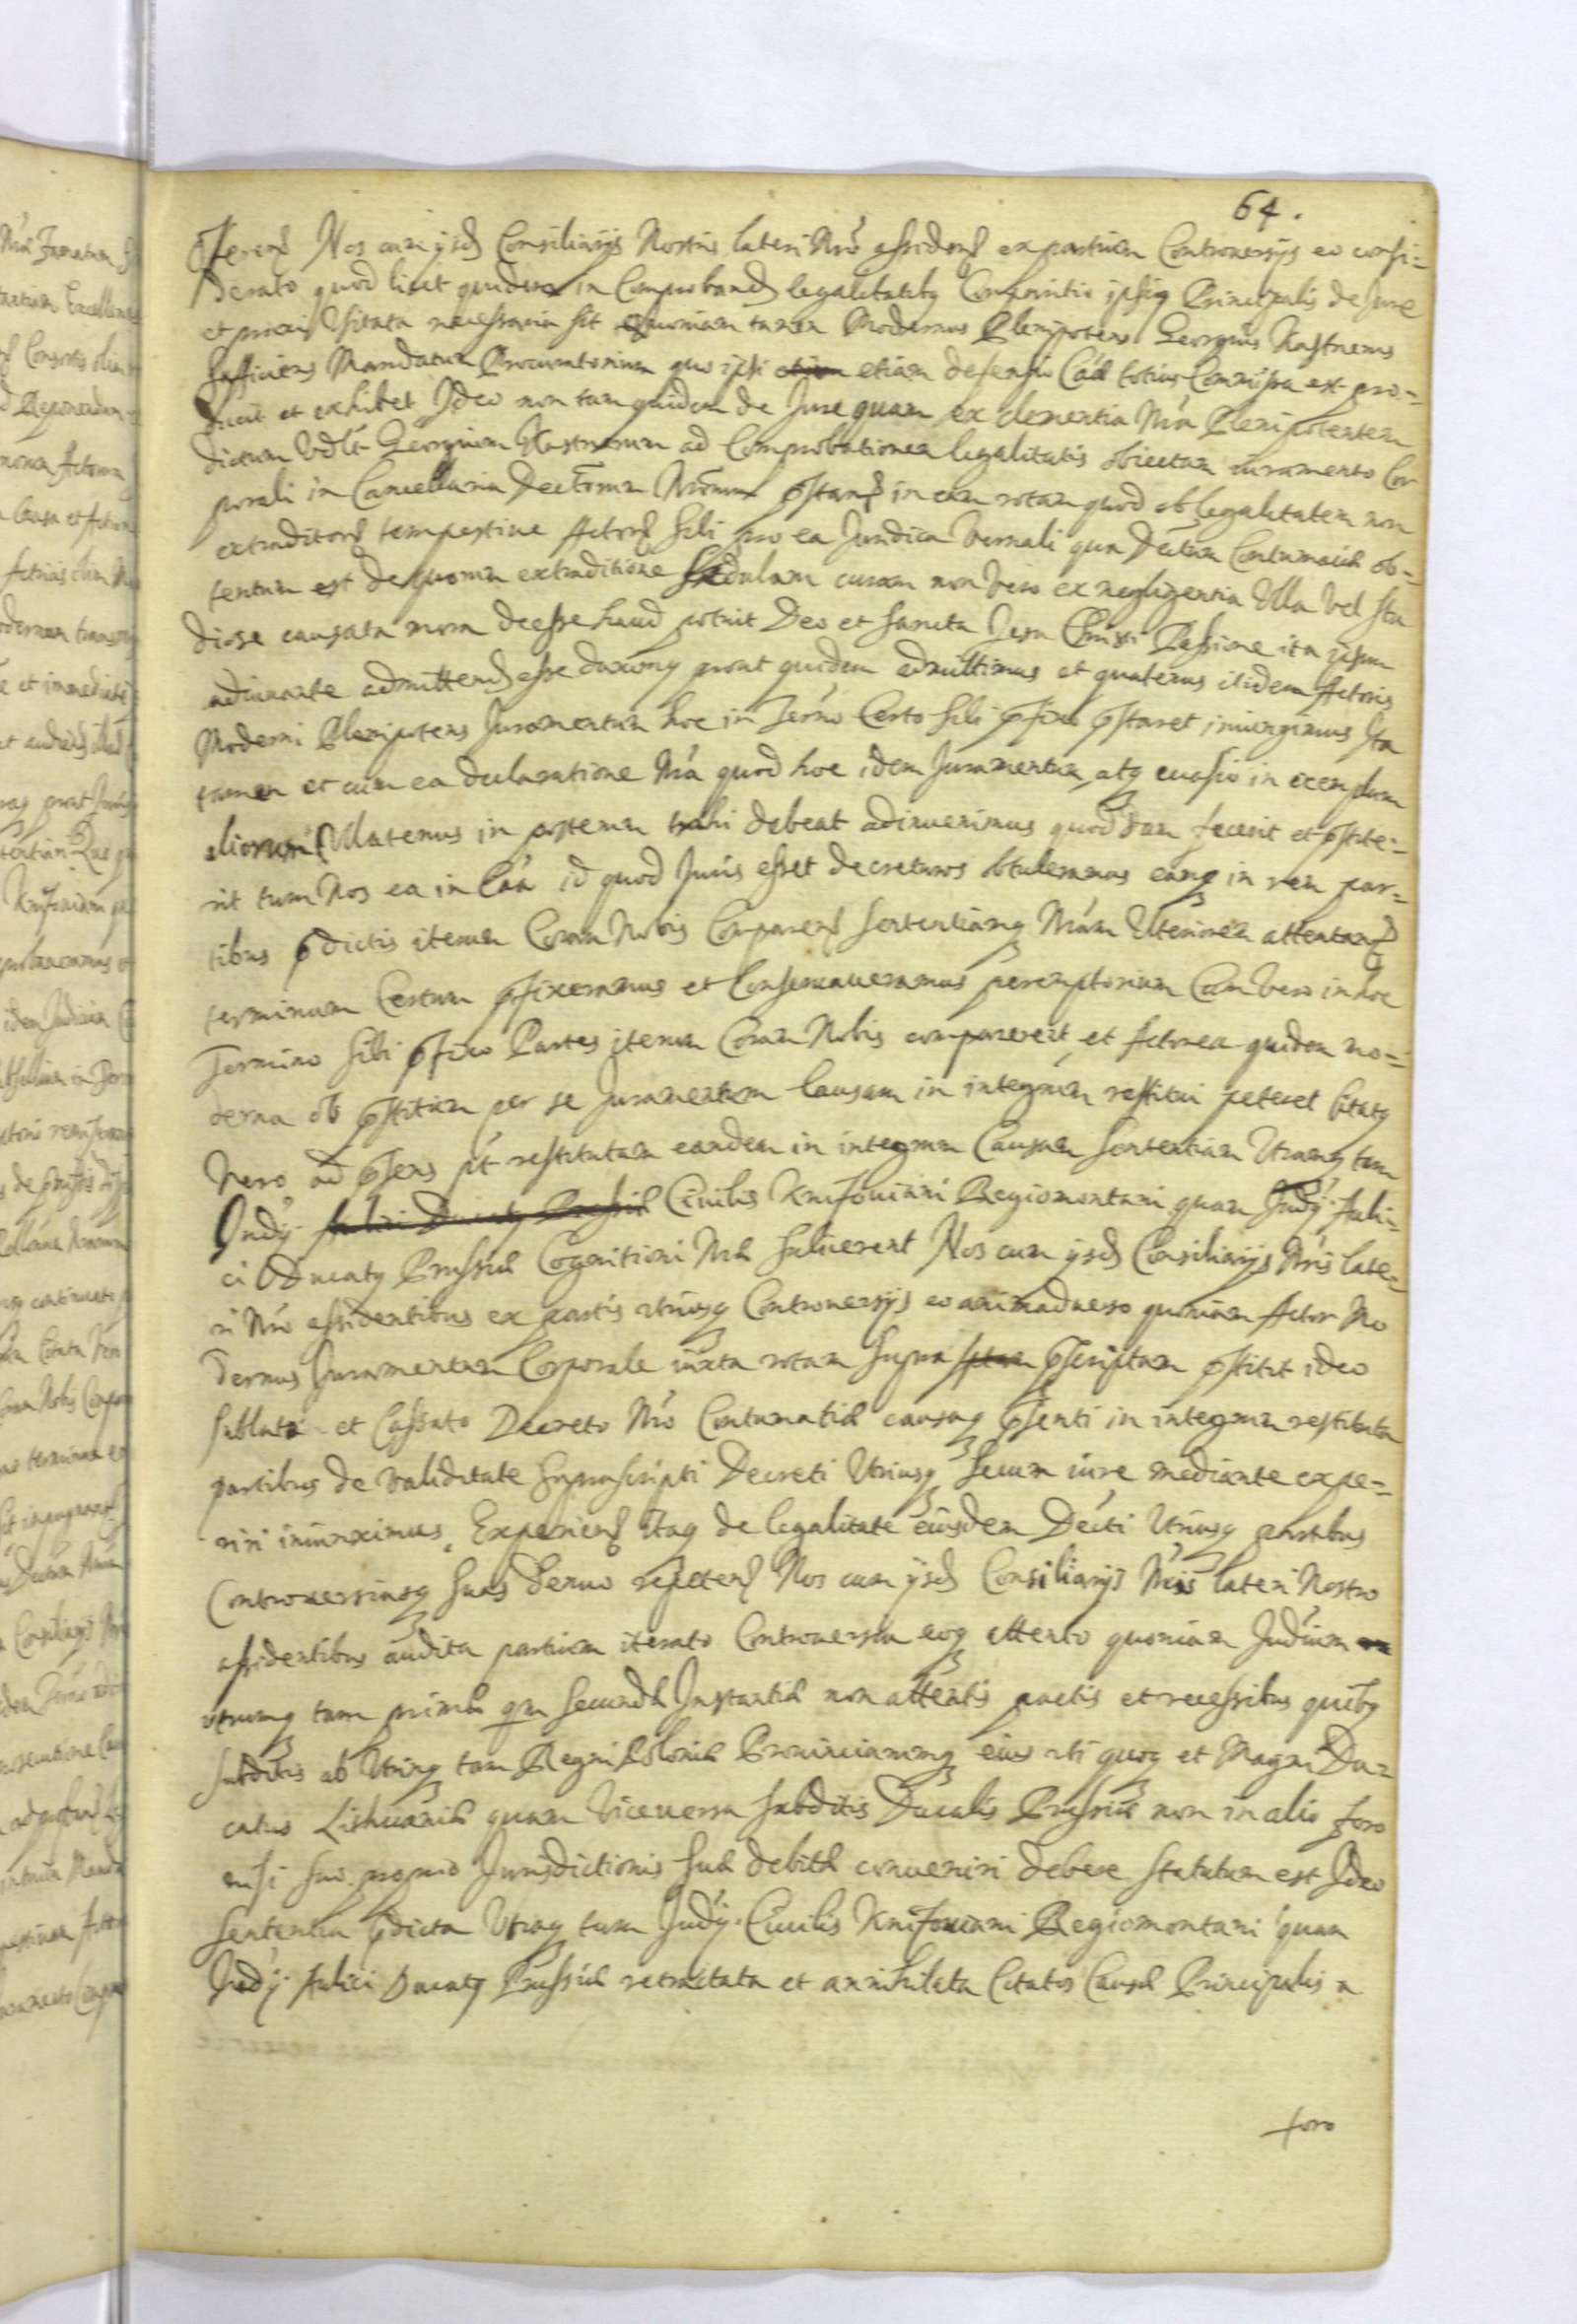 64.
fferen Nos cum ijsd Consiliarijs Nostris lateri Nro assiden ex partium Controversijs eo consi-
derato quod licet quidem in Comproband legalitatibq Comparitio ipsiq Principalis de Jure
et praxi Usitata necessaria sit Quoniam tamen Modernus Plenipotens Georgius Kastnerus
sufficiens Mandatum Procuratorium quo ipsi etiam defensio Cae totius Commissa est pro-
ducit et exhibet Ideo non tam quidem de Jure quam ex clementia Nra Plenipotentem
dictum Vdlt Georgium Kastnerum ad Comprobationem legalitatis obiectam iuramento Cor
porali in Cancellaria Dectorum Nrorum pstand in eam rotam quod ob legalitatem non
extraditorum tempestive Actor sibi pro ea Juridica Vernali qua Dectum Contumaciae ob-
tentum est de quorum extraditione Sedulam curam non vero ex negligentia Ulla vel stu
diose causata mora deesse haud potuit Deo et Sancta Jesu Christi Passione ita ipsum
adiuvante admittend esse duximq prout quidem admittimus et quatenus itidem Actoris
Moderni Plenipotens Juramentum hoc in Termo Certo sibi pfixo pstaret iniungimus Ita
tamen et cum ea declaratione Nra quod hoc idem Juramentum, atq evasio in exemplum
aliorum Ullatenus in posterum trahi debeat adinvenimus quod dum fecerit et pstite-
rit tum Nos ea in Caa id quod Juris esset decreturos obtuleramus eamq in rem par-
tibus pdictis iterum Coram Nobis Comparend sententiamq Nram Ulteriorem attentand
terminum Certum pfixeramus et Conservaveramus peremptorium Cum vero in hoc
Termino sibi pfixo Partes iterum Coram Nobis comparerent, et Actorea quidem mo-
derna ob pstitum per se Juramentum Causam in integrum restitui peteret Citatq
Vero ad psens pt restitutam eandem in integrum Causam Sententiam Utramq tam
Judij Civilis Knifoviani Regiomontani quam Judij Auli-
ci Ducatq Prussiae Cogenitioni Nrae subiicerent Nos cum ijsd Consiliarijs Nris late-
ri Nro assidentibus ex partis utriusq Controversijs eo animadverso quoniam Actor Mo
dernus Juramentum Corporale iuxta rotam Supra pscriptam pstitit ideo
sublato et Cassato Decreto Nro Contumatiae causaq psenti in integrum restituta
partibus de validitate suprascripti Decreti Utriusq secum iure mediante expe-
riri iniunximus. Experiend Itaq de legalitate eiusdem Decti Utriusq partibus
Controversiasq suas denuo repetend Nos cum ijsd Consiliarijs Nris lateri Nostro
assidentibus audita partium iterato Controversia eoq attento quoniam Judicium
utrumq tam primae qm secundae Instantiae non attentis pactis et recessibus quibq
subditis ab Utrinq tam Regni Poloniae Provinciarumq eius uti quoq et Magni Du-
catus Lithuaniae quam Viceversa subditis Ducalis Prussiae non in alio foro
nisi suo proprio Jurisdictionis suae debitae conveniri debere statutum est Ideo
Sententia pdicta Utraq tam Judij Civilis Knifoviani Regiomontani quam
Judij Aulici Ducatq Prussiae retractata et annihilata Citatos Causae Principalis a
foro